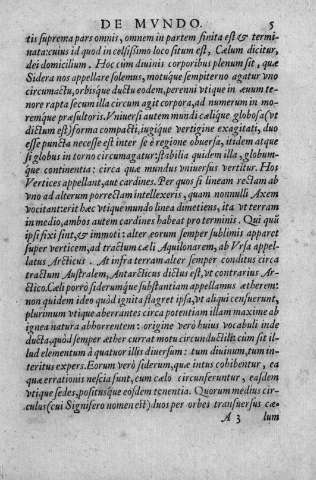 DE MVNDO. 5
tis suprema pars omnis, omnem in partem finita est & termi-
nata: cuius id quod in celsissimo loco situm est, Cælum dicitur,
dei domicilium. Hoc cùm diuinis corporibus plenum sit, quæ
Sidera nos appellare solemus, motuque sempiterno agatur vno
circumactu, orbisque ductu eodem, perenni vtique in æuum te-
nore rapta secum illa circum agit corpora, ad numerum in mo-
remque præsultoris. Vniuersi autem mundi cælique globosa (vt
dictum est) forma compacti, iugique vertigine exagitati, duo
esse puncta necesse est inter se è regione obuersa, itidem atque
si globus in torno circumagatur: stabilia quidem illa, globum-
que continentia: circa quæ mundus vniuersus vertitur. Hos
Vertices appellant, aut cardines. Per quos si lineam rectam ab
vno ad alterum porrectam intellexeris, quam nonnulli Axem
vocitant: erit hæc vtique mundo linea dimetiens, ita vt terram
in medio, ambos autem cardines habeat pro terminis. Qui quū
ipsi fixi sint, & immoti: alter eorum semper sublimis apparet
super verticem, ad tractum cæli Aquilonarem, ab Vrsa appel-
latus Arcticus. At infra terram alter semper conditus circa
tractum Australem, Antarcticus dictus est, vt contrarius Ar-
ctico. Cæli porrò siderumque substantiam appellamus æthera:
non quidem ideo quòd ignita flagret ipsa, vt aliqui censuerunt,
plurimum vtique aberrantes circa potentiam illam maxime ab
ignea natura abhorrentem: origine verò huius vocabuli inde
ducta, quòd semper æther currat motu circunductili: cum sit il-
lud elementum à quatuor illis diuersum: tum diuinum, tum in-
teritus expers. Eorum verò siderum, quæ intus cohibentur, ea
quæ errationis nescia sunt, cum cælo circunferuntur, easdem
vtique sedes, positusque eosdem tenentia. Quorum medius cir-
culus (cui Signifero nomen est) duos per orbes transuersus cæ-
A 3 lum